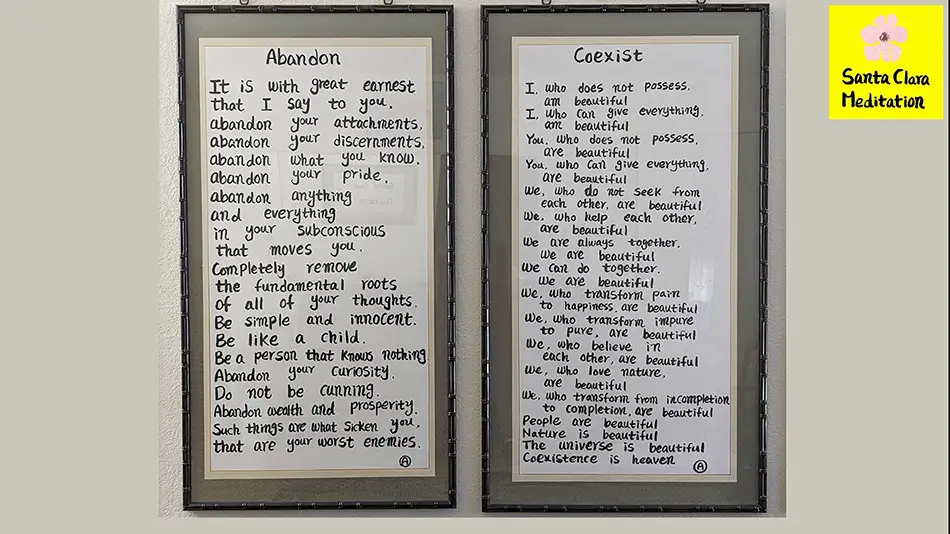 Abandon
It is with great earnest
that I say to you.
abandon your attachments,
abandon your discernments,
abandon what you know,
abandon your pride,
abandon anything
and everything
in your subconscious
that moves you.
Completely remove
the fundamental roots
of all of your thoughts.
Be simple and innocent.
Be like a child.
Be a person that knows nothing
Abandon your curiosity.
Do not be cunning.
Abandon wealth and prosperity.
Such things are what sicken you,
that are your worst enemies.
A
Coexist
I, who does not possess,
am beautiful
I, who can give everything,
am beautiful
You, who does not possess,
are beautiful
You, who can give everything,
are beautiful
We, who do not seek from
each other, are beautiful
We, who help each other,
are beautiful
We are always together.
We are beautiful
We can do together.
We are beautiful
We, who transform pain
to happiness, are beautiful
We, who transform impure
to pure, are beautiful
We, who believe in
each other, are beautiful
We, who love nature,
are beautiful
We, who transform from incompletion
to completion, are beautiful
People are beautiful
Nature is beautiful
The universe is beautiful
Coexistence is heaven
A
Santa Clara
Meditation